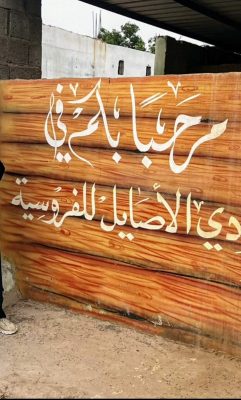 مرحبًا بكم في
دي الأصايل للفروسية